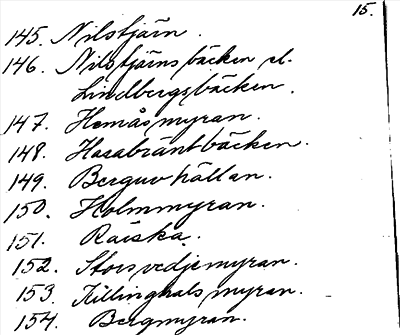 15.
145. Nilstjärn.
146. Nilstjärnsbäcken el.
Lindbergsbäcken.
147. Hemåsmyran.
148. Hasabräntbäcken.
149. Berguvhällan.
150. Holmmyran.
151. Räiska.
152. Storsvedjemyran.
153. Killinghalsmyran.
154. Bergmyran.